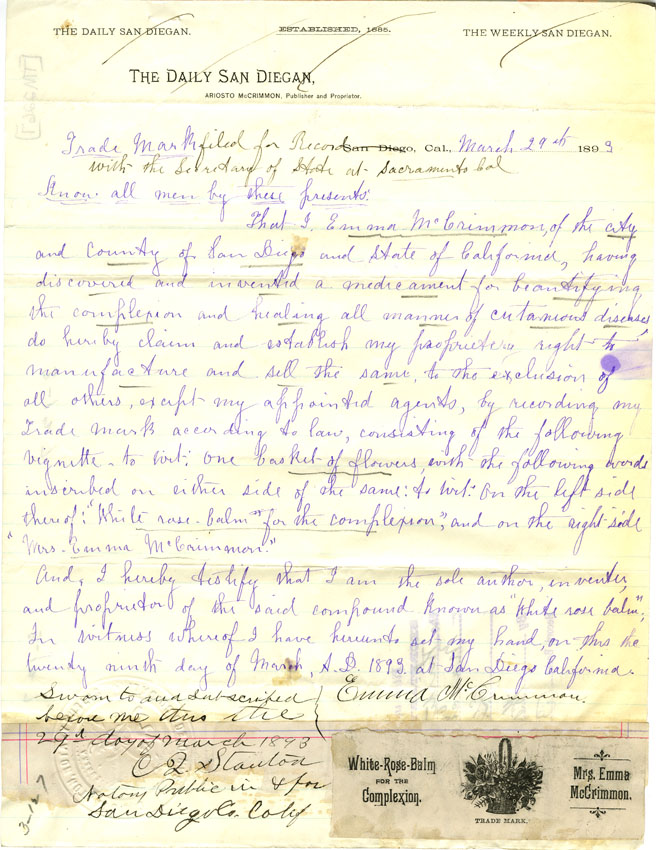 THE DAILY SAN DIEGAN. ESTABLISHED, 1885. THE WEEKLY SAN DIEGAN.
THE DAILY SAN DIEGAN,
ARIOSTO McCRIMMON, Publisher and Proprietor.
Trade Mark filed for Record San Diego, Cal., March 29th 1893
with the Secretary of State at Sacramento Cal
Know all men by these presents:
That I, Emma McCrimmon, of the city
and county of San Diego and State of California, having
discovered and invented a medicament for beautifying
the complexion and healing all manner of cutanious diseases
do hereby claim and establish my proprietary right to
manufacture and sell the same, to the exclusion of
all others, except my appointed agents, by recording my
Trade mark according to law, consisting of the following
vignette - to wit: One basket of flowers, with the following words
inscribed on either side of the same: to wit: On the left side
thereof: "White rose-balm" for the complexion", and on the right side
"Mrs. Emma McCrimmon."
And, I hereby testify that I am the sole author, inventer,
and proprietor of the said compound known as "White rose balm".
In witness whereof I have hereunto set my hand, on this the
twenty ninth day of March, A.D. 1893 at San Diego California.
Sworn to and subscribed
before me this the
29th day of March 1893
Emma McCrimmon.
Stanton
Notary Public in & for
San Diego Co. Calif
3-127
White-Rose-Balm
FOR THE
Complexion.
TRADE MARK.
Mrs. Emma
McCrimmon.